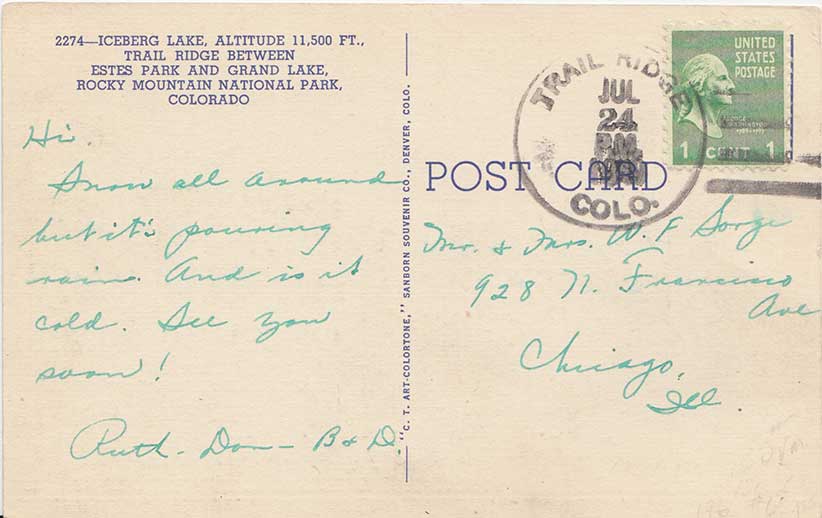 2274—ICEBERG LAKE, ALTITUDE 11,500 FT.,
TRAIL RIDGE BETWEEN
ESTES PARK AND GRAND LAKE,
ROCKY MOUNTAIN NATIONAL PARK,
COLORADO
Hi.
Snow all around
but it's pouring
rain. And is it
cold. See you
soon!
Ruth - Don - B & D.
"C. T. ART-COLORTONE," SANBORN SOUVENIR CO., DENVER, COLO.
POST CARD
TRAIL RIDGE
JUL
24
P.M.
COLO.
UNITED
STATES
POSTAGE
GEORGE
WASHINGTON
1 CENT 1
Mr. & Mrs. W. F. Sorge
928 N. Francisco
Ave
Chicago,
Ill